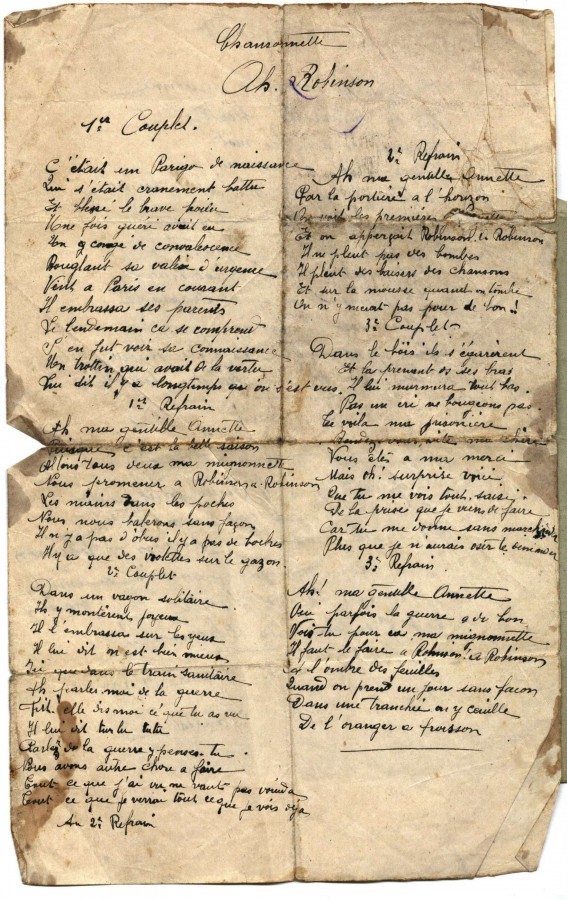 Chansonnette
Ah. Robinson
1er Couplet.
C'était un Parigo de naissance
Qui s'était cranement battu
Et blessé le brave poilu
Une fois guéri avait eu
Un congé de convalescence
Bouglant sa valise d'urgence
Vint a Paris en courant
Il embrassa ses parents
Le lendemain ca se comprend
S'en fut voir sa connaissance
Un trottin qui avait de la vertu
Lui dit il y a longtemps qu'on s'est vus.
1er Refrain
Ah ma gentille Annette
Puisque c'est la belle saison
Allons tous deux ma mignonnette
Nous promener a Robinson-a-Robinson
Les mains dans les poches
Nous nous baterons sans façon
Il n'y a pas d'obus il y a pas de boches
Il y a que des violettes sur le gazon.
2e Couplet
Dans un vagon solitaire.
Ils y montèrent joyeux
Il l'embrassa sur les yeux
Il lui dit on est bien mieux
Ici que dans le train sanitaire
Ah parles moi de la guerre
Fit elle dis moi ce que tu as vu
Il lui dit tur lu tutu
Parlez de la guerre y penses-tu
Nous avons autre chose a faire
Tout ce que j'ai vu, ne vaut pas
Tout ce que je verrai tout ce que je vois deja
Au 2e Refrain
2e Refrain
Ah ma gentille Annette
Par la portière a l'horizon
On voit les premières
Et on apperçoit Robinson. a Robinson
Il ne pleut pas des bombes
Il pleut des baisers des chansons
Et sur la mousse quand on tombe
On n'y meurt pas pour de bon!!
3e Couplet
Dans le bois ils s'égarèrent
Et la prenant de ses bras
Il lui murmura tout bas.
Pas un cri ne bougeons pas.
Te voila ma prisonière
Rendez vous vite ma chère
Vous êtes a ma merci
Mais oh! surprise voici
Que tu me vois tout saisi
De la prise que je viens de faire
Car tu me donne sans
Plus que je n'aurais osé te demander
3e Refrain.
Ah! ma gentille Annette
Oui parfois la guerre a de bon
Vois-tu pour ca ma mignonnette
Il faut le faire a Robinson! a Robinson
a l'ombre des feuilles
Quand on prend un jour sans facon
Dans une tranchée on y cueille
De l'oranger a foisson